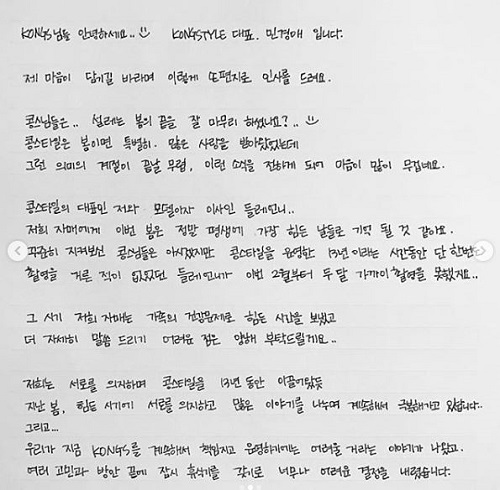 KONGS님들 안녕하세요.. KONGSTYLE 대표. 민경애 입니다.
제 마음이 담기길 바라며 이렇게 또 편지로 인사를 드려요.
콩스님들은.. 설레는 봄의 끝을 잘 마무리 하셨나요?..
콩스타일은 봄이면 특별히. 많은 사랑을 받아왔었는데
그런 의미의 계절이 끝날 무렵, 이런 소식을 전하게 되어 마음이 많이 무겁네요.
콩스타일의 대표인 저와 모델이자 이사인 들레언니..
저희 자매에게 이번 봄은 정말 평생에 가장 힘든 날들로 기억 될 것 같아요.
꾸준히 지켜보신 콩스님들은 아시겠지만 콩스타일을 운영한 13년이라는 시간동안 단 한번
촬영을 거른 적이 없었던 들레언니가 이번 2월부터 두 달 가까이 촬영을 못했지요..
그 시기 저희 자매는 가족의 건강문제로 힘든 시간을 보냈고
더 자세히 말씀 드리기 어려운 점은 양해 부탁드릴게요..
저희는 서로를 의지하며 콩스타일을 13년 동안 이끌어왔듯
지난 봄, 힘든 시기에 서로를 의지하고 많은 이야기를 나누며 계속해서 극복해가고 있습니다..
그리고...
우리가 지금 KONGS를 계속해서 책임지고 운영하기에는 어려울 거라는 이야기가 나왔고.
여러 고민과 방안 끝에 잠시 휴식기를 갖기로 너무나 어려운 결정을 내렸습니다.